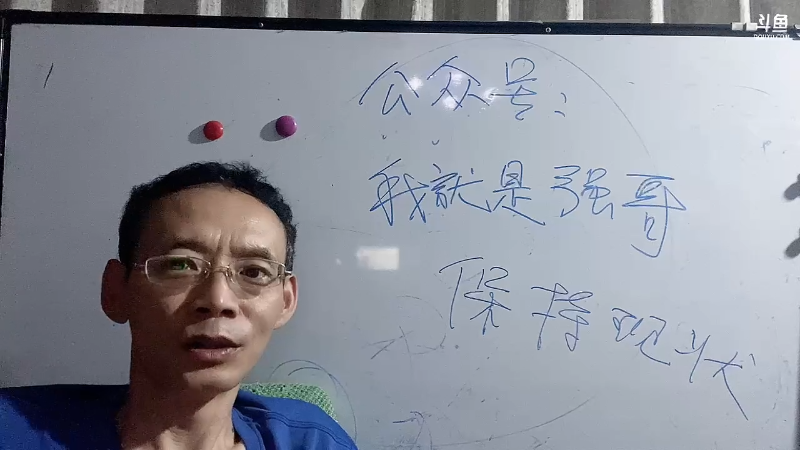 斗鱼
DOUYU.COM
公众号：
我就是强哥
保持现状